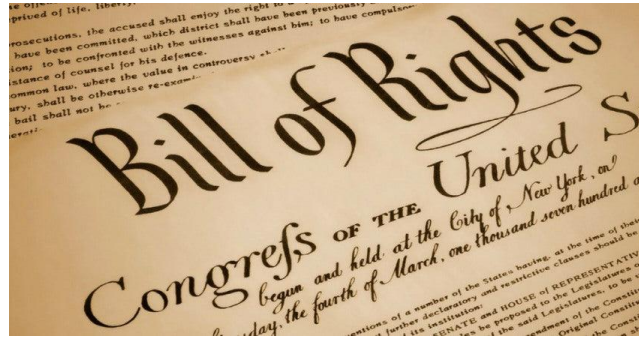 prived of life, liberty,
rosecutions, the accused shall enjoy the right to
have been committed, which district shall have been previously
ion; to be confronted with the witnesses against him; to have compulsor
istance of counsel for his defence.
ommon law, where the value in controversy
ury, shall be otherwise
bail shall not be
Bill of Rights
Congreſs OF THE United S
begun and held at the City of New York, on
the fourth of March, one thousand seven hundred
of a number of the States having, at the time of
further declaratory and restrictive clauses should be
its institution:
SENATE and HOUSE of
be proposed to the Legislatures
the said Legislatures, to be
of the
Original